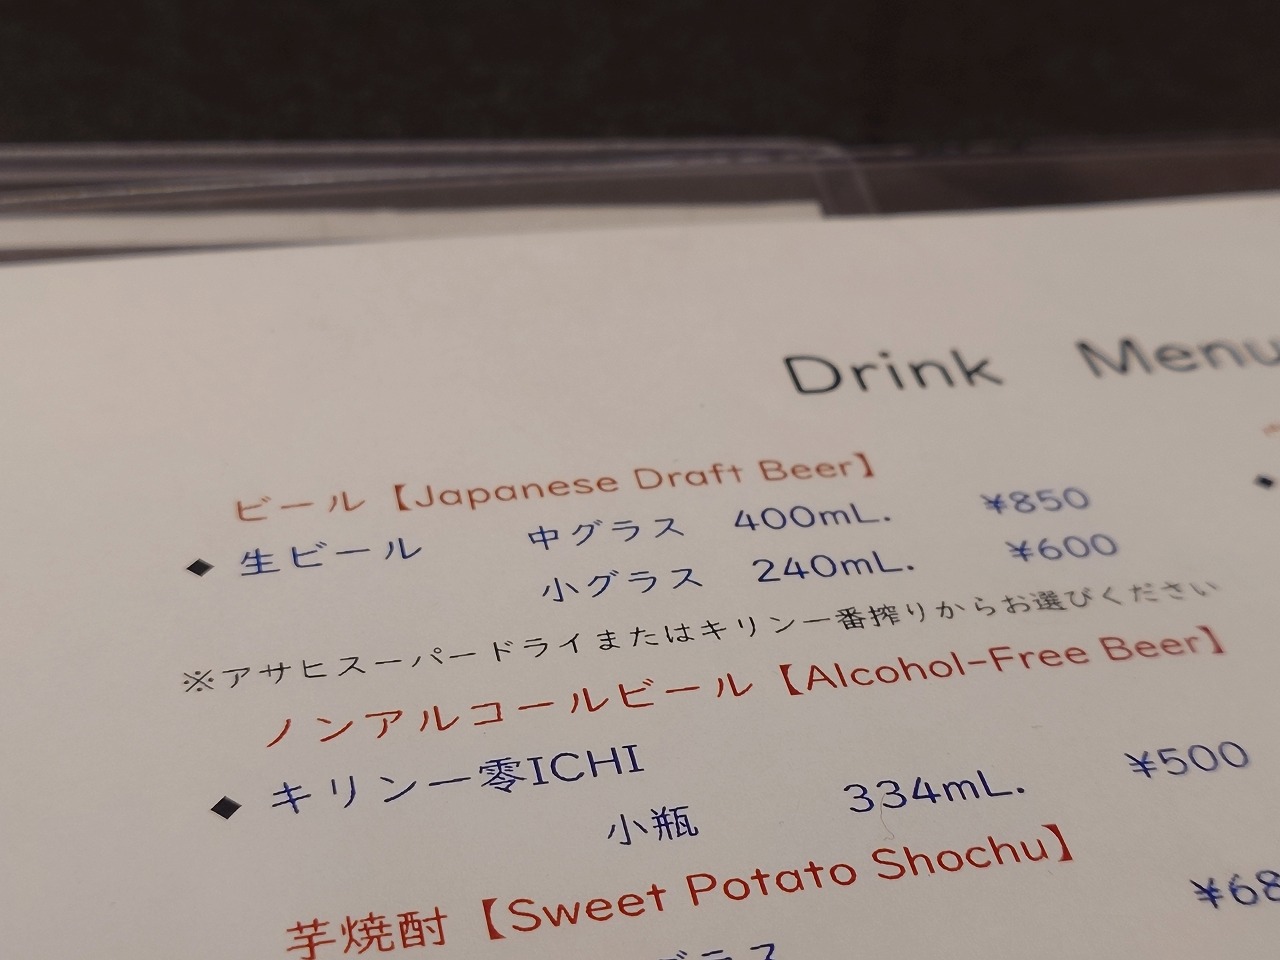 Drink Menu
ビール【Japanese Draft Beer】
◆ 生ビール 中グラス 400mL. ¥850
小グラス 240mL. ¥600
※アサヒスーパードライまたはキリン一番搾りからお選びください
ノンアルコールビール【Alcohol-Free Beer】
◆ キリン一零ICHI
小瓶 334mL. ¥500
芋焼酎【Sweet Potato Shochu】
グラス ¥68